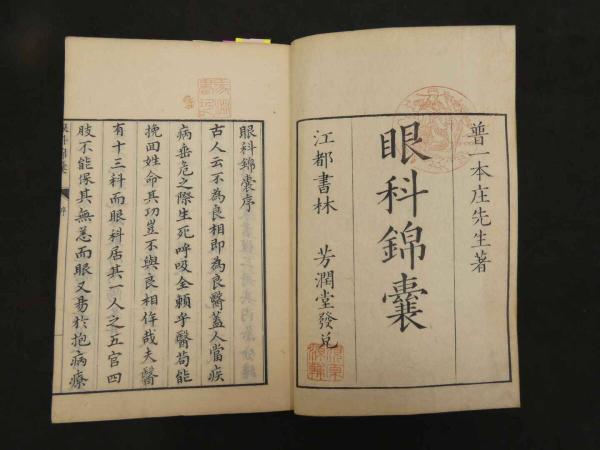 普一本庄先生著
眼科錦囊
江都書林 芳潤堂發兌
眼科錦囊序
古人云不為良相即為良醫蓋人當疾
病垂危之際生死呼吸全賴乎醫苟能
挽回姓命其功豈不與良相侔哉夫醫
有十三科而眼科居其一人之五官四
肢不能保其無恙而眼又易於抱病療